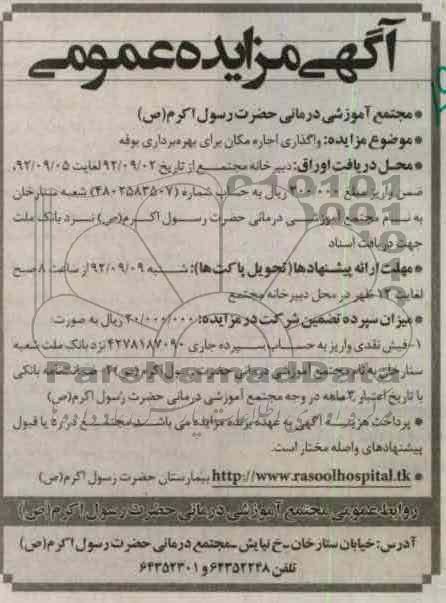 آگهی مزایده عمومی
* مجتمع آموزشی درمانی حضرت رسول اکرم (ص)
* موضوع مزایده: واگذاری اجاره مکان برای بهره‌برداری بوفه
* محل دریافت اوراق: دبیرخانه مجتمع از تاریخ ۹۲/۰۹/۰۲ لغایت ۹۲/۰۹/۰۵،
ضمن واریز مبلغ ۳۰۰/۰۰۰ ریال به حساب شماره (۴۸۰۲۵۸۳۵۰۷) شعبه ستارخان
به نام مجتمع آموزشی درمانی حضرت رسول اکرم (ص) نزد بانک ملت
جهت دریافت اسناد
* مهلت ارائه پیشنهادها (تحویل پاکت‌ها): شنبه ۹۲/۰۹/۰۹ از ساعت ۸ صبح
لغایت ۱۲ ظهر در محل دبیرخانه مجتمع
* میزان سپرده تضمین شرکت در مزایده: ۲۰/۰۰۰/۰۰۰ ریال به صورت:
۱-فیش نقدی واریز به حساب سپرده جاری ۴۲۷۸۱۸۷۰۹۰ نزد بانک ملت شعبه
ستارخان به نام مجتمع آموزشی درمانی حضرت رسول اکرم (ص) ۲- ضمانتنامه بانکی
با تاریخ اعتبار ۳ ماهه در وجه مجتمع آموزشی درمانی حضرت رسول اکرم (ص)
* پرداخت هزینه آگهی به عهده برنده مزایده می باشد. مجتمع در رد یا قبول
پیشنهادهای واصله مختار است.
* http://www.rasoolhospital.tk بیمارستان حضرت رسول اکرم (ص)
روابط عمومی مجتمع آموزشی درمانی حضرت رسول اکرم (ص)
آدرس: خیابان ستارخان ـ خ نیایش ـ مجتمع درمانی حضرت رسول اکرم (ص)
تلفن ۶۴۳۵۲۲۴۸ و ۶۴۳۵۲۳۰۱
ParsNamadData